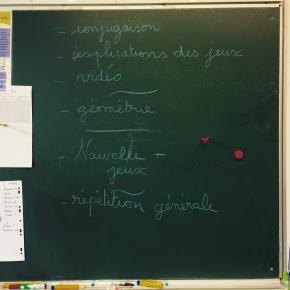 - conjugaison
- explications des jeux
- vidéo
- géométrie
- Nouvelle +
jeux
- répétition générale